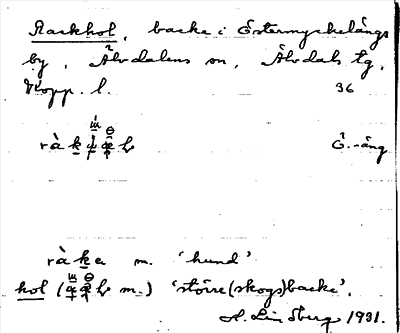 Rackhol, backe i Östermyckelängs
by, Älvdalens sn, Älvdals tg,
Kopp. l. 36
Ö.-äng
ràke m. 'hund'
hol ( m.) 'större (skogs)backe'.
H. Lindberg 1931.